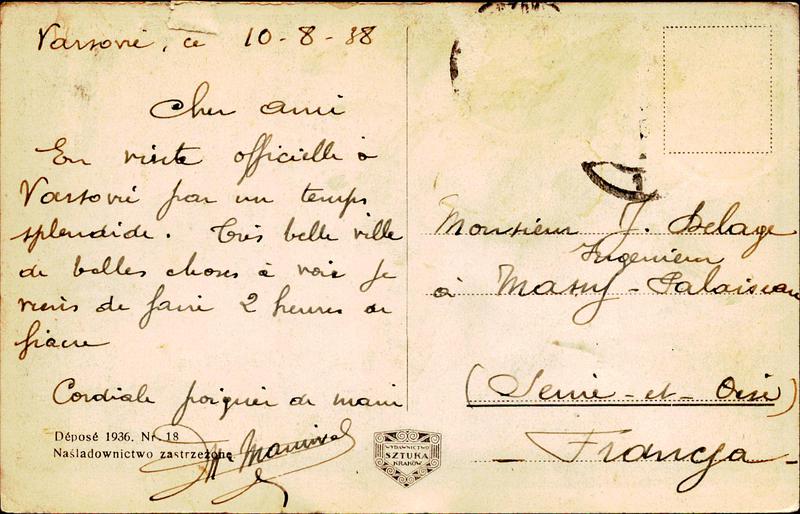 Varsovie, ce 10-8-38
Cher ami
En visite officielle à
Varsovie par un temps
splendide. Très belle ville
de belles choses à voir je
viens de faire 2 heures de
fiacre
Cordiale poignée de main
Déposé 1936. Nr. 18
Naśladownictwo zastrzeżone
WYDAWNICTWO
SZTUKA
KRAKÓW
Monsieur J. Delage
Ingenieur
à Massy-Palaiseau
(Seine-et-Oise)
- Francja -